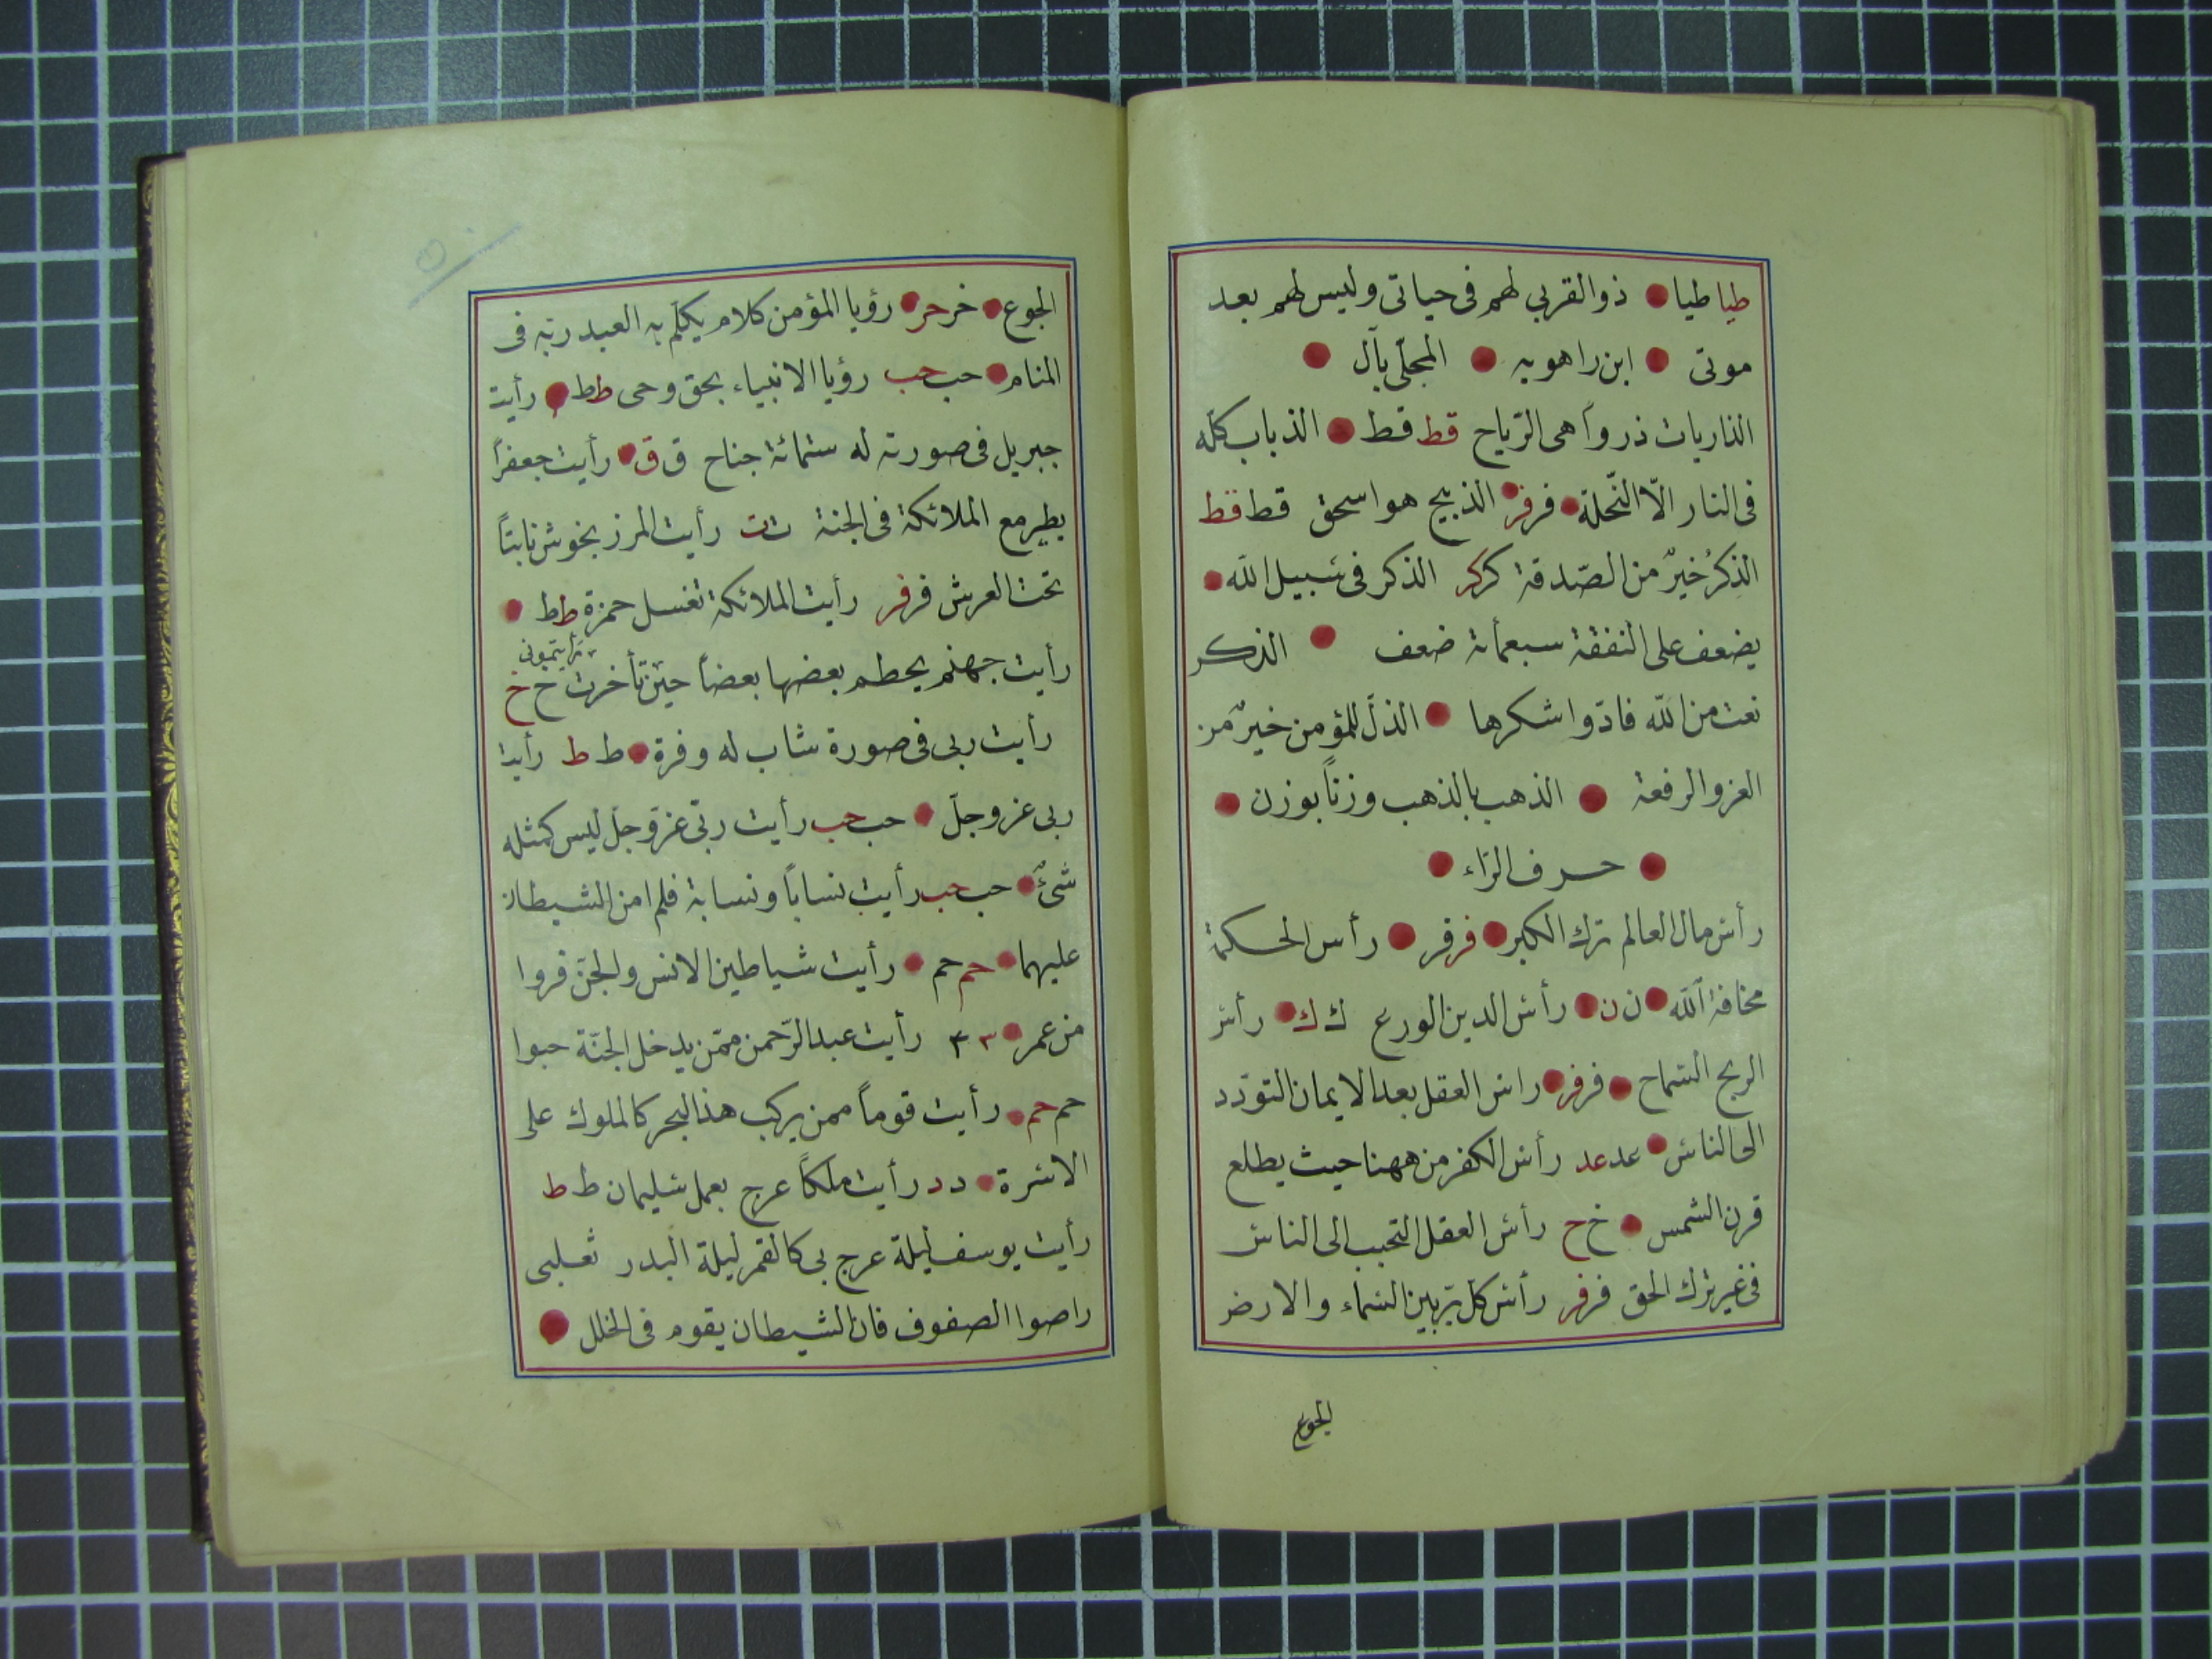 طيا طيا ذو القربى لهم فى حياتى وليس لهم بعد
موتى ابن راهويه المجلى بآل
الذاريات ذرواً هى الرّياح قط قط الذباب كلّه
فى النار الّا النّحلة فر فر الذبيح هو اسحق قط قط
الذكرُ خيرٌ من الصّدقة كر كر الذكر فى سبيل الله
يضعف على النفقة سبعمأتة ضعف الذكر
نعت من الله فادّوا شكرها الذلّ للمؤمن خيرٌ من
العز والرفعة الذهب بالذهب وزناً بوزن
حرف الرّاء
رأس مال العالم ترك الكبر فر فر رأس الحكمة
مخافة الله ن ن رأس الدين الورع ك ك رأس
الربح السماح فر فر راس العقل بعد الايمان التودّد
الى الناس عد عد رأس الكفر من ههنا حيث يطلع
قرن الشمس خ ح رأس العقل التحبب الى الناس
فى غير ترك الحق فر فر رأس كل برّ بين السماء والارض
الجوع
الجوع خر حر رؤيا المؤمن كلام يكلّم به العبد ربّه فى
المنام حب حب رؤيا الانبياء بحق وحى ط ط رأيت
جبريل فى صورته له ستمائة جناح ق ق رأيت جعفراً
يطير مع الملائكة فى الجنة ت ت رأيت المرز بخوش نابتاً
تحت العرش فر فر رأيت الملائكة تغسل حمزة ط ط
رأيتمونى
رأيت جهنم يحطم بعضها بعضاً حين تأخرت خ خ
رأيت ربى فى صورة شاب له وفرة ط ط رأيت
ربى عز وجلّ حب حب رأيت ربّى عزّ وجلّ ليس كمثله
شئٌ حب حب رأيت نساباً ونسابة فلم امن الشيطان
عليهما حم حم رأيت شياطين الانس والجنّ فروا
من عمر ٣ ٣ رأيت عبد الرّحمن ممّن يدخل الجنّة حبوا
حم حم رأيت قوماً ممن يركب هذا البحر كالملوك على
الاسرة د د رأيت ملكاً عرج بعمل سليمان ط ط
رأيت يوسف ليلة عرج بى كالقمر ليلة البدر ثعلبى
راصوا الصفوف فان الشيطان يقوم فى الخلل